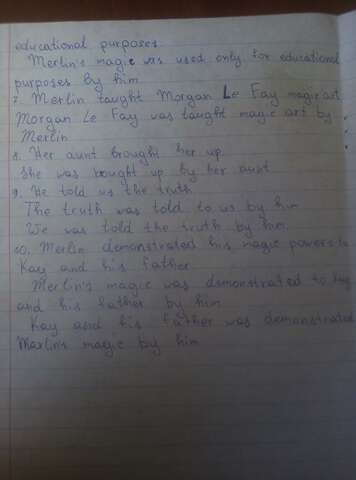 educational purposes
Merlin's magic was used only for educational
purposes by him
7. Merlin taught Morgan Le Fay magic art
Morgan Le Fay was taught magic art by
Merlin
8. Her aunt brought her up
She was bought up by her aunt
9. He told us the truth
The truth was told to us by him
We was told the truth by him
10. Merlin demonstrated his magic powers to
Kay and his father
Merlin's magic was demonstrated to Kay
and his father by him
Kay and his father was demonstrated
Merlin's magic by him